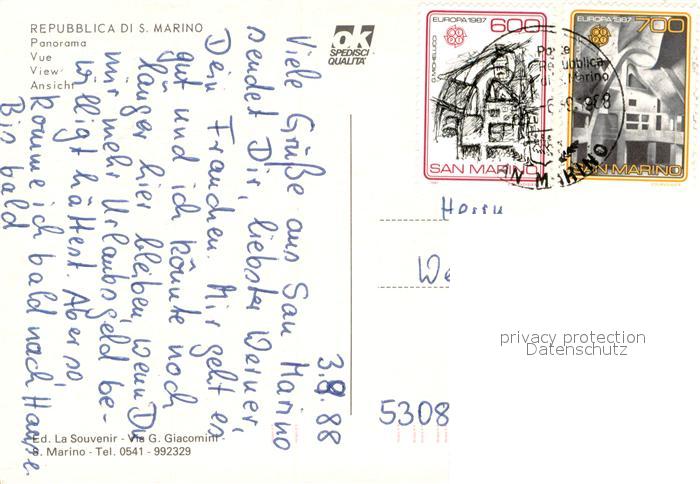 REPUBBLICA DI S. MARINO
Panorama
Vue
View
Ansicht
ok
SPEDISCI
QUALITA'
3.8.88
Viele Grüße aus San Marino
sendet Dir, liebster Werner,
Dein Frauchen. Mir geht es
gut und ich könnte noch
länger hier bleiben, wenn Du
mir mehr Urlaubsgeld be-
willigt hättest. Aber so
komme ich bald nach Hause.
Bis bald
Ed. La Souvenir - Via G. Giacomini -
S. Marino - Tel. 0541 - 992329
EUROPA 1987 600
G. MICHELUCCI
SAN MARINO
EUROPA 1987 700
SAN MARINO
Poste
Repubblica
Marino
Herrn
We
5308
privacy protection
Datenschutz